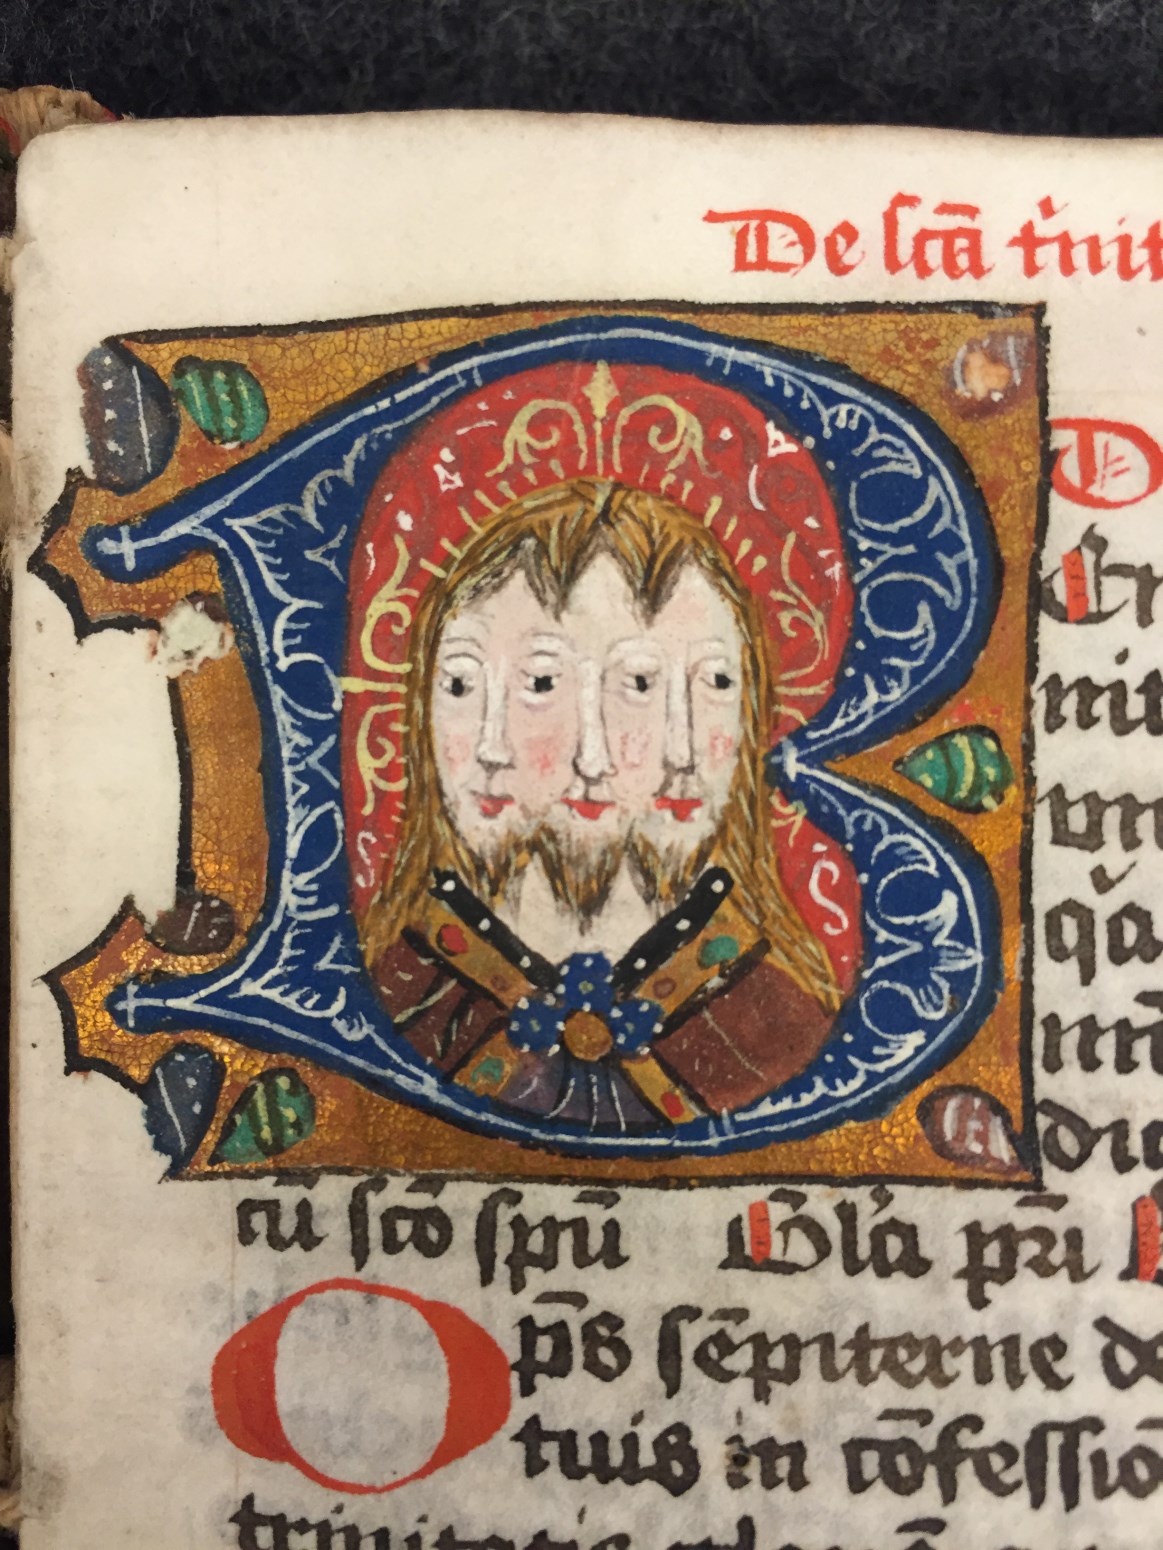 De sc̄ā tⁱnit
B
D
Er
nit
vn
qͣ
nr̄
dic
cū sc̄o spū Gl'a pr̄i
Op̄s sēpiterne de
tuis in cōfessio
trinitatis